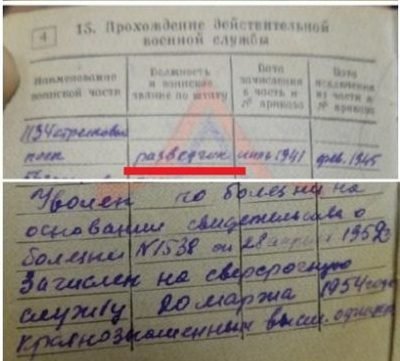 4
15. Прохождение действительной
военной службы
Наименование воинской части
Должность и воинское звание по штату
Дата зачисления в часть и № приказа
Дата исключения из части и № приказа
1134 стрелковой
полк разведчик июль 1941 фев. 1945
Уволен по болезни на
основании свидетельства о
болезни N 1538 от 28 апреля 1952г
Зачислен на сверсрочную
службу 20 марта 1954 года
краснознаменный